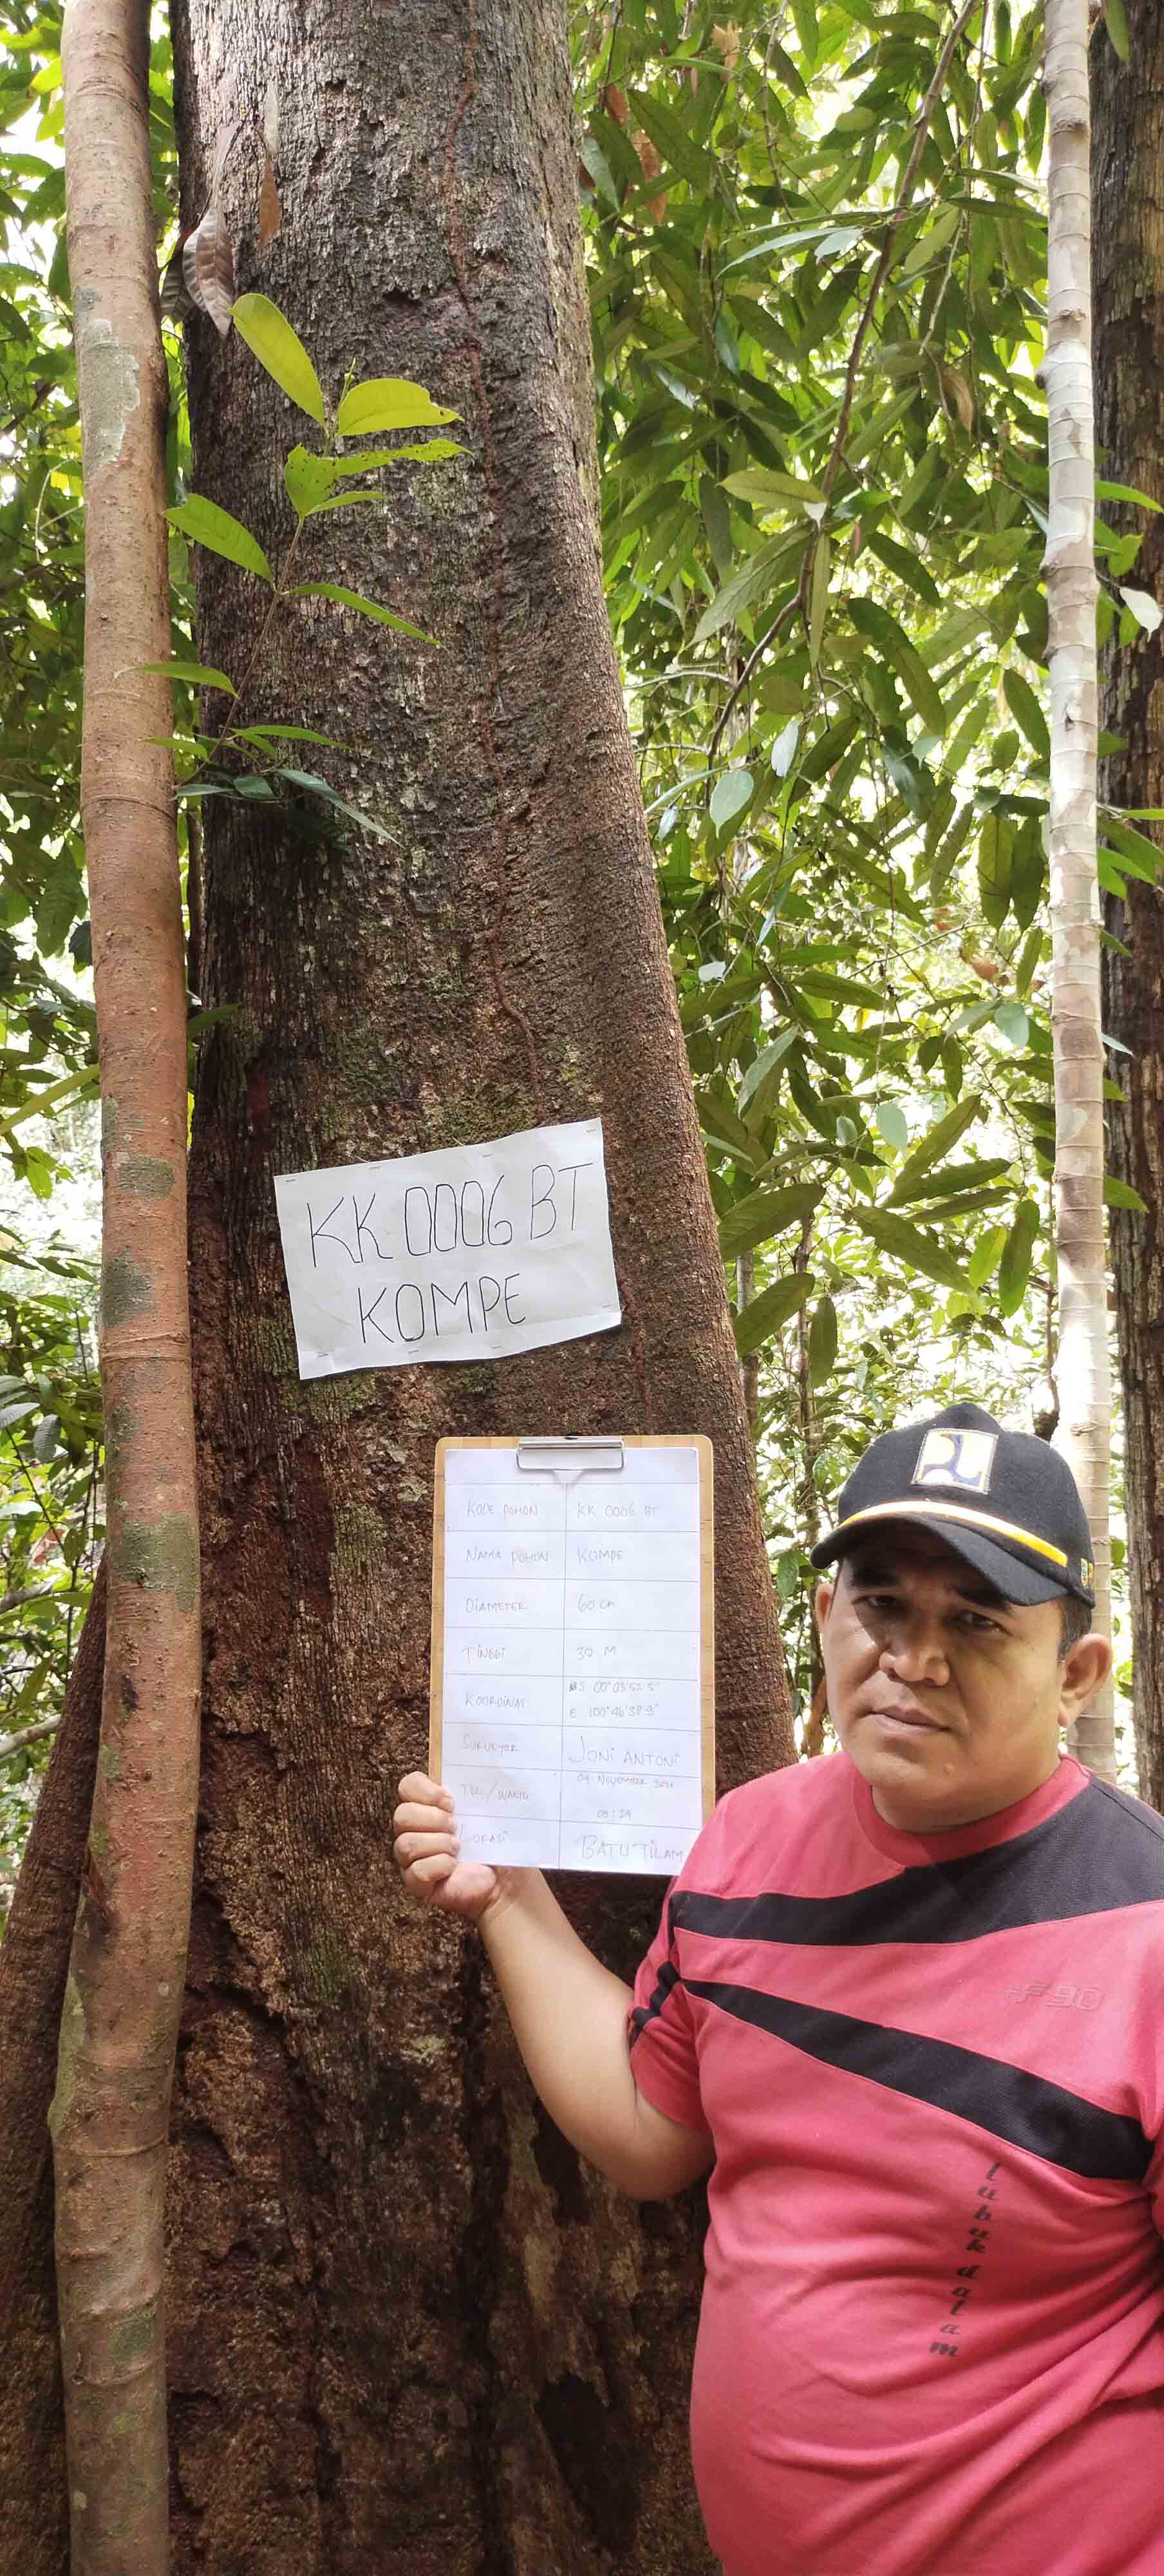 KK 0006 BT
KOMPE
KODE POHON KK 0006 BT
NAMA POHON KOMPE
DIAMETER 60 CM
TINGGI 30 M
KOORDINAT S 00°03'52.5"
E 100°46'38.9"
SURVEYOR JONI ANTONI
TGL/WAKTU 09 NOVEMBER
LOKASI BATU TILAM
lubuk dalam